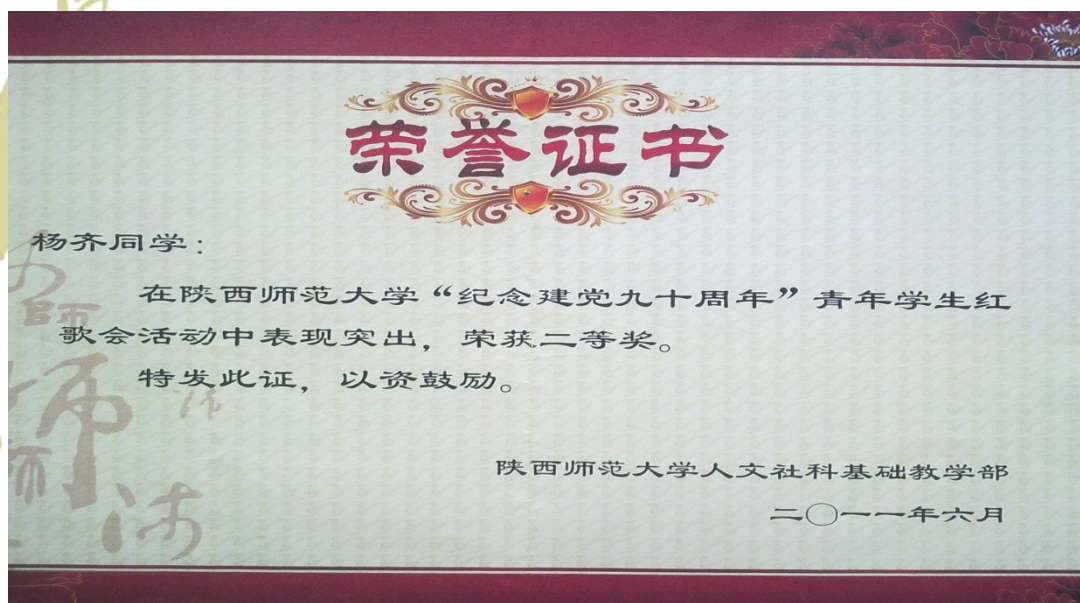 荣誉证书
杨齐同学：
在陕西师范大学“纪念建党九十周年”青年学生红
歌会活动中表现突出，荣获二等奖。
特发此证，以资鼓励。
陕西师范大学人文社科基础教学部
二〇一一年六月
師
师
师